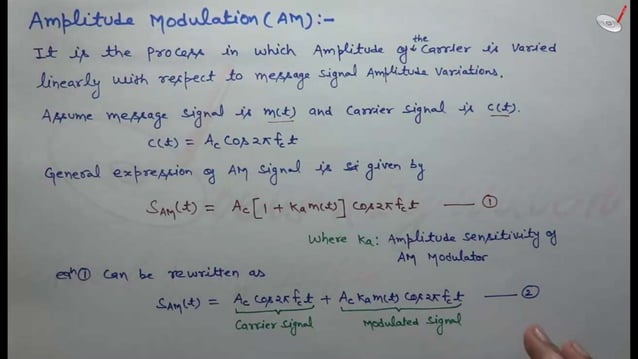 Amplitude Modulation (AM) :-
It is the process in which Amplitude of the Carrier is varied
linearly with respect to message signal Amplitude variations.
Assume message signal is m(t) and Carrier signal is c(t).
c(t) = Ac Cos 2π fc t
General expression of AM signal is given by
SAM(t) = Ac [1 + Ka m(t)] Cos 2π fc t —— ①
where Ka : Amplitude sensitivity of
AM Modulator
eqn ① Can be rewritten as
SAM(t) = Ac Cos 2π fc t + Ac Ka m(t) Cos 2π fc t —— ②
Carrier Signal Modulated Signal